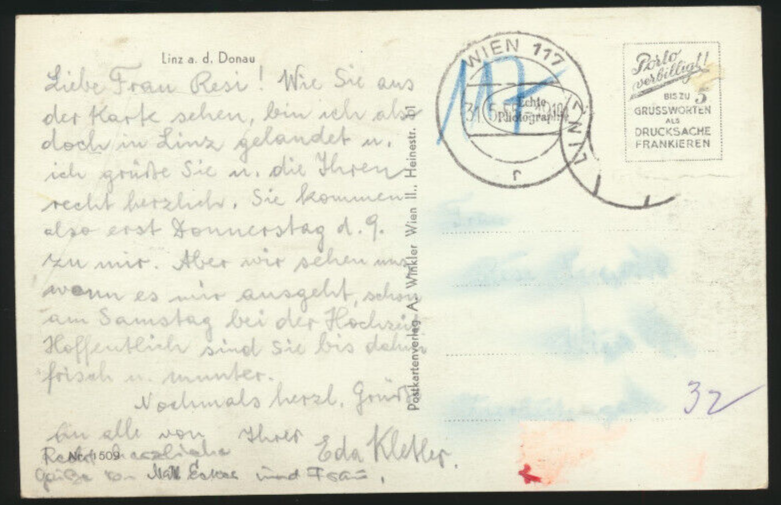 Linz a. d. Donau
Liebe Frau Resi! Wie Sie aus
der Karte sehen, bin ich also
doch in Linz gelandet u.
ich grüße Sie u. die Ihren
recht herzlich. Sie kommen
also erst Donnerstag d. 9.
zu mir. Aber wir sehen uns,
wenn es mir ausgeht, schon
am Samstag bei der Hochzeit
Hoffentlich sind Sie bis dahin
frisch u. munter.
Nochmals herzl. Grüße
an alle von Ihrer
Eda Kletler.
Recht herzliche
Grüße von und Frau.
Nr. 1509
Postkartenverlag A. Winkler Wien II., Heinestr.
WIEN 117
31. 5. 55
r
LINZ
Echte
Photographie
Porto
verbilligt!
BIS ZU 5
GRUSSWORTEN
ALS
DRUCKSACHE
FRANKIEREN
Frau
32